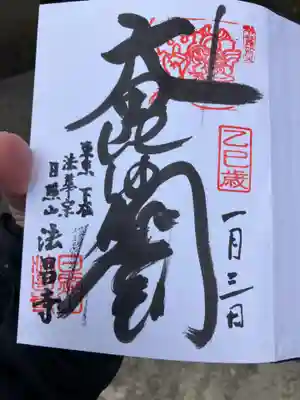 一月三日
乙巳歳
毘沙門
東京 下谷
法華宗
日照山
法昌寺